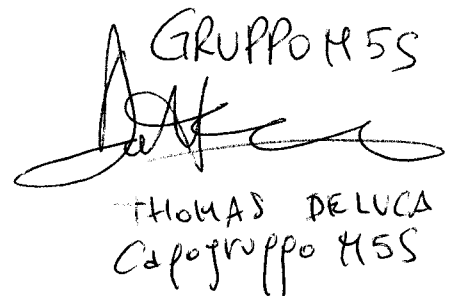 GRUPPO M5S
THOMAS DE LUCA
Capogruppo M5S